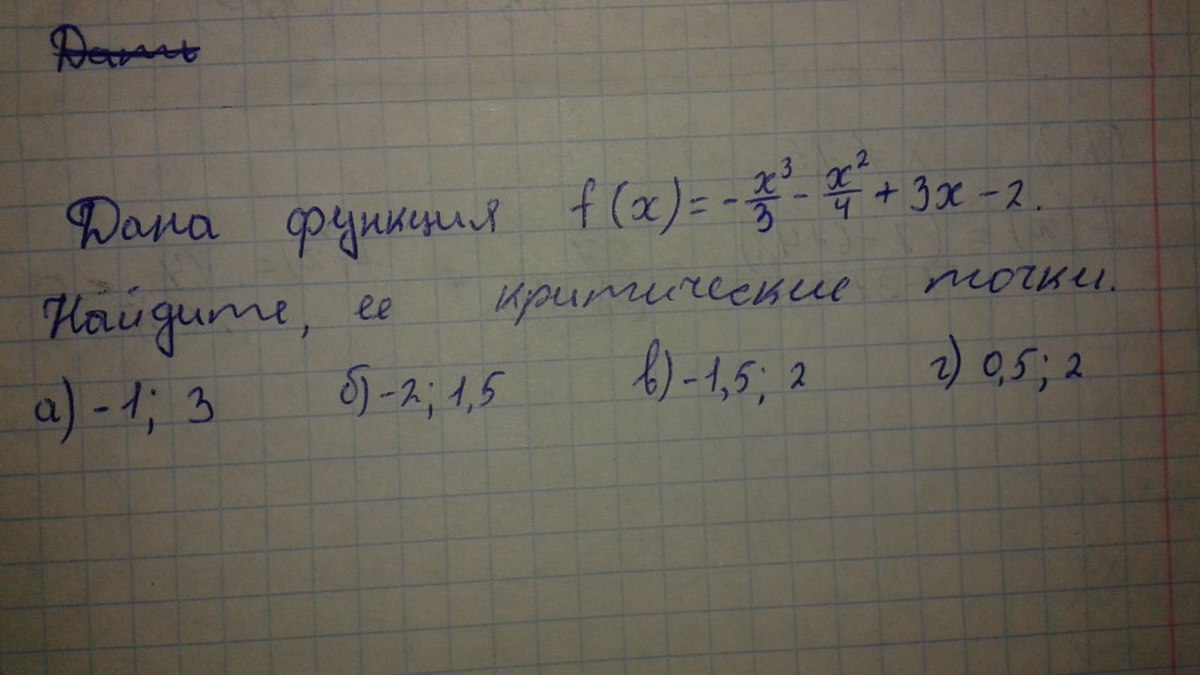 Дана функция f(x)=-x³/3-x²/4+3x-2.
Найдите, ее критические точки.
а) -1; 3 б) -2; 1,5 в) -1,5; 2 г) 0,5; 2